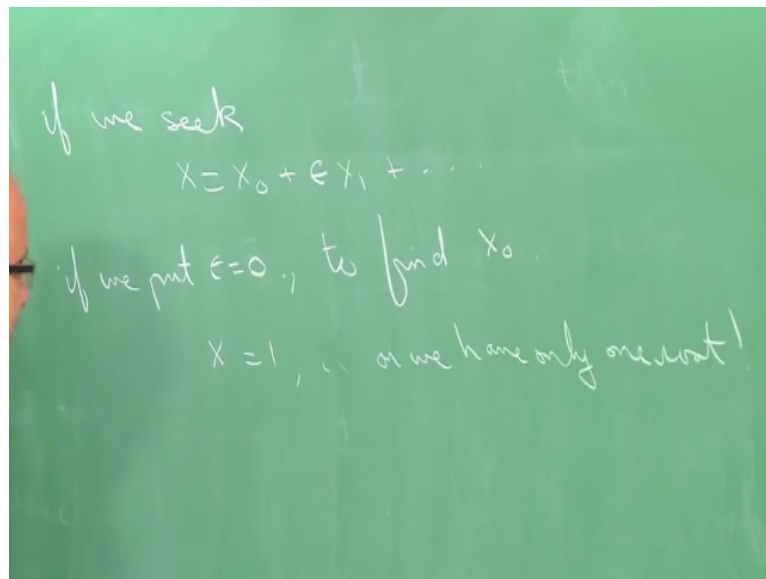 if we seek
x = x₀ + ϵ x₁ + ....
if we put ϵ=0, to find x₀.
x = 1, .. or we have only one root!